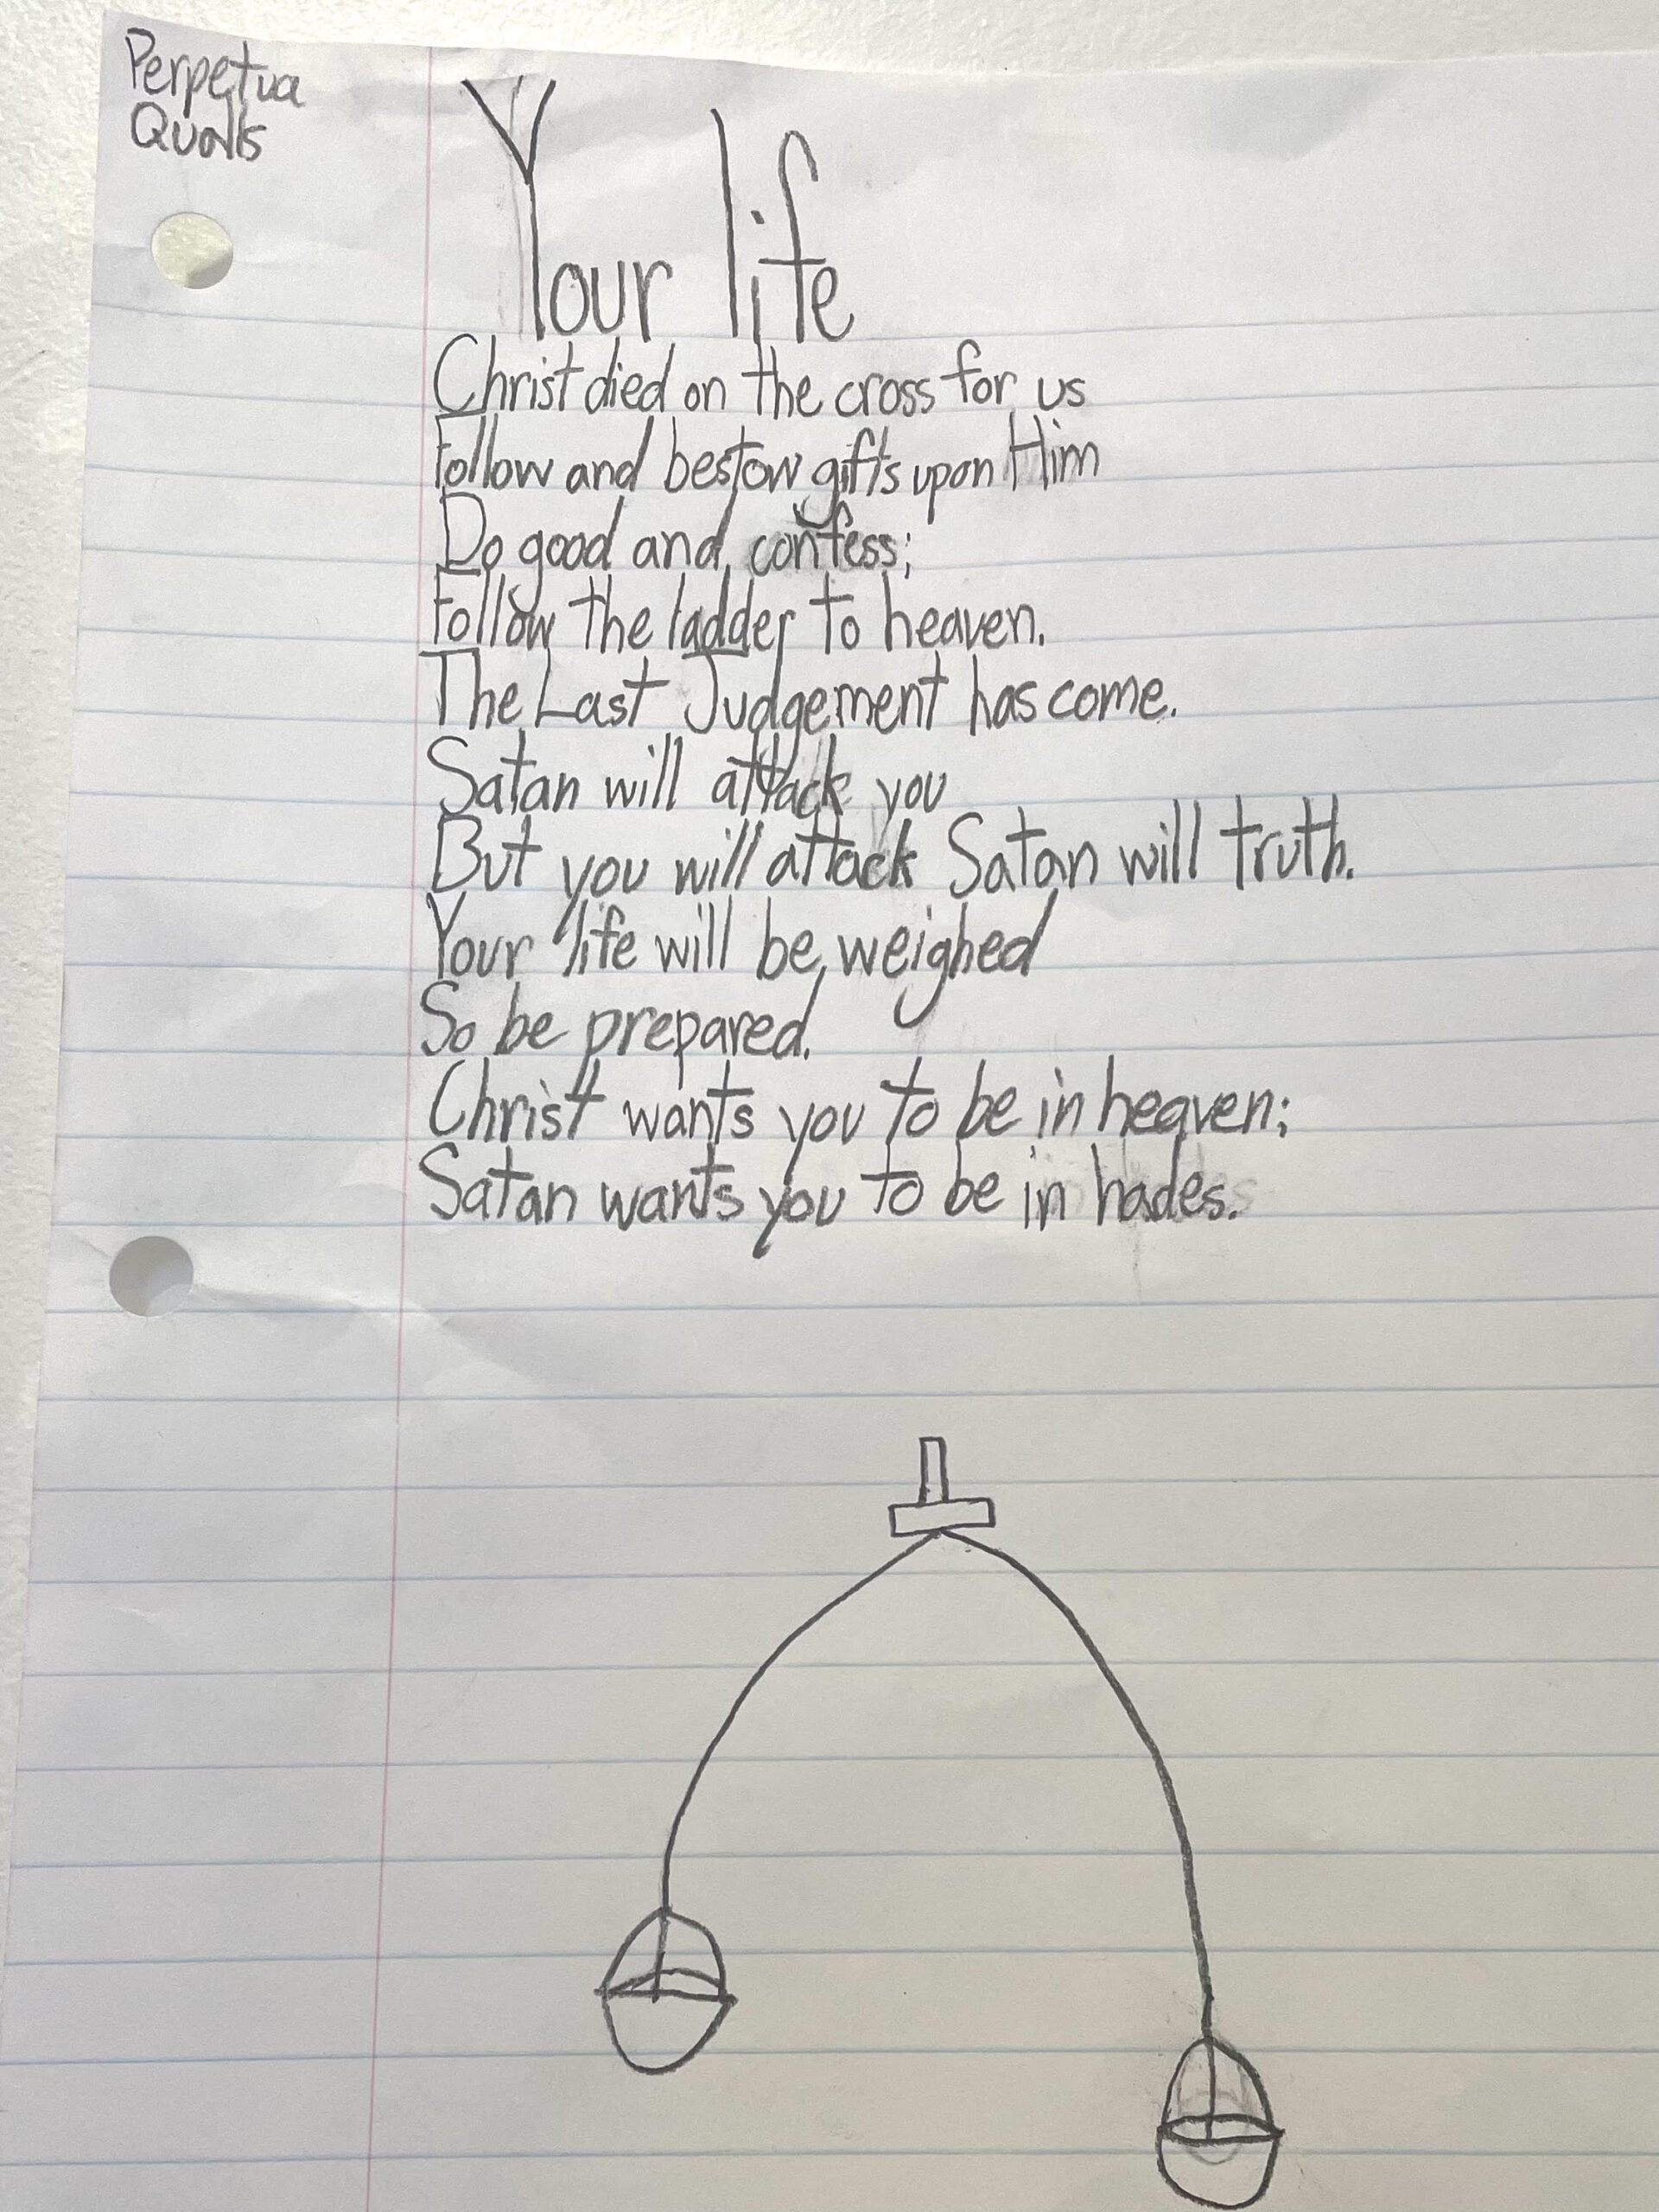 Perpetua
Qualls
Your life
Christ died on the cross for us
Follow and bestow gifts upon Him
Do good and confess;
Follow the ladder to heaven.
The Last Judgement has come.
Satan will attack you
But you will attack Satan will truth.
Your life will be weighed
So be prepared.
Christ wants you to be in heaven;
Satan wants you to be in hades.